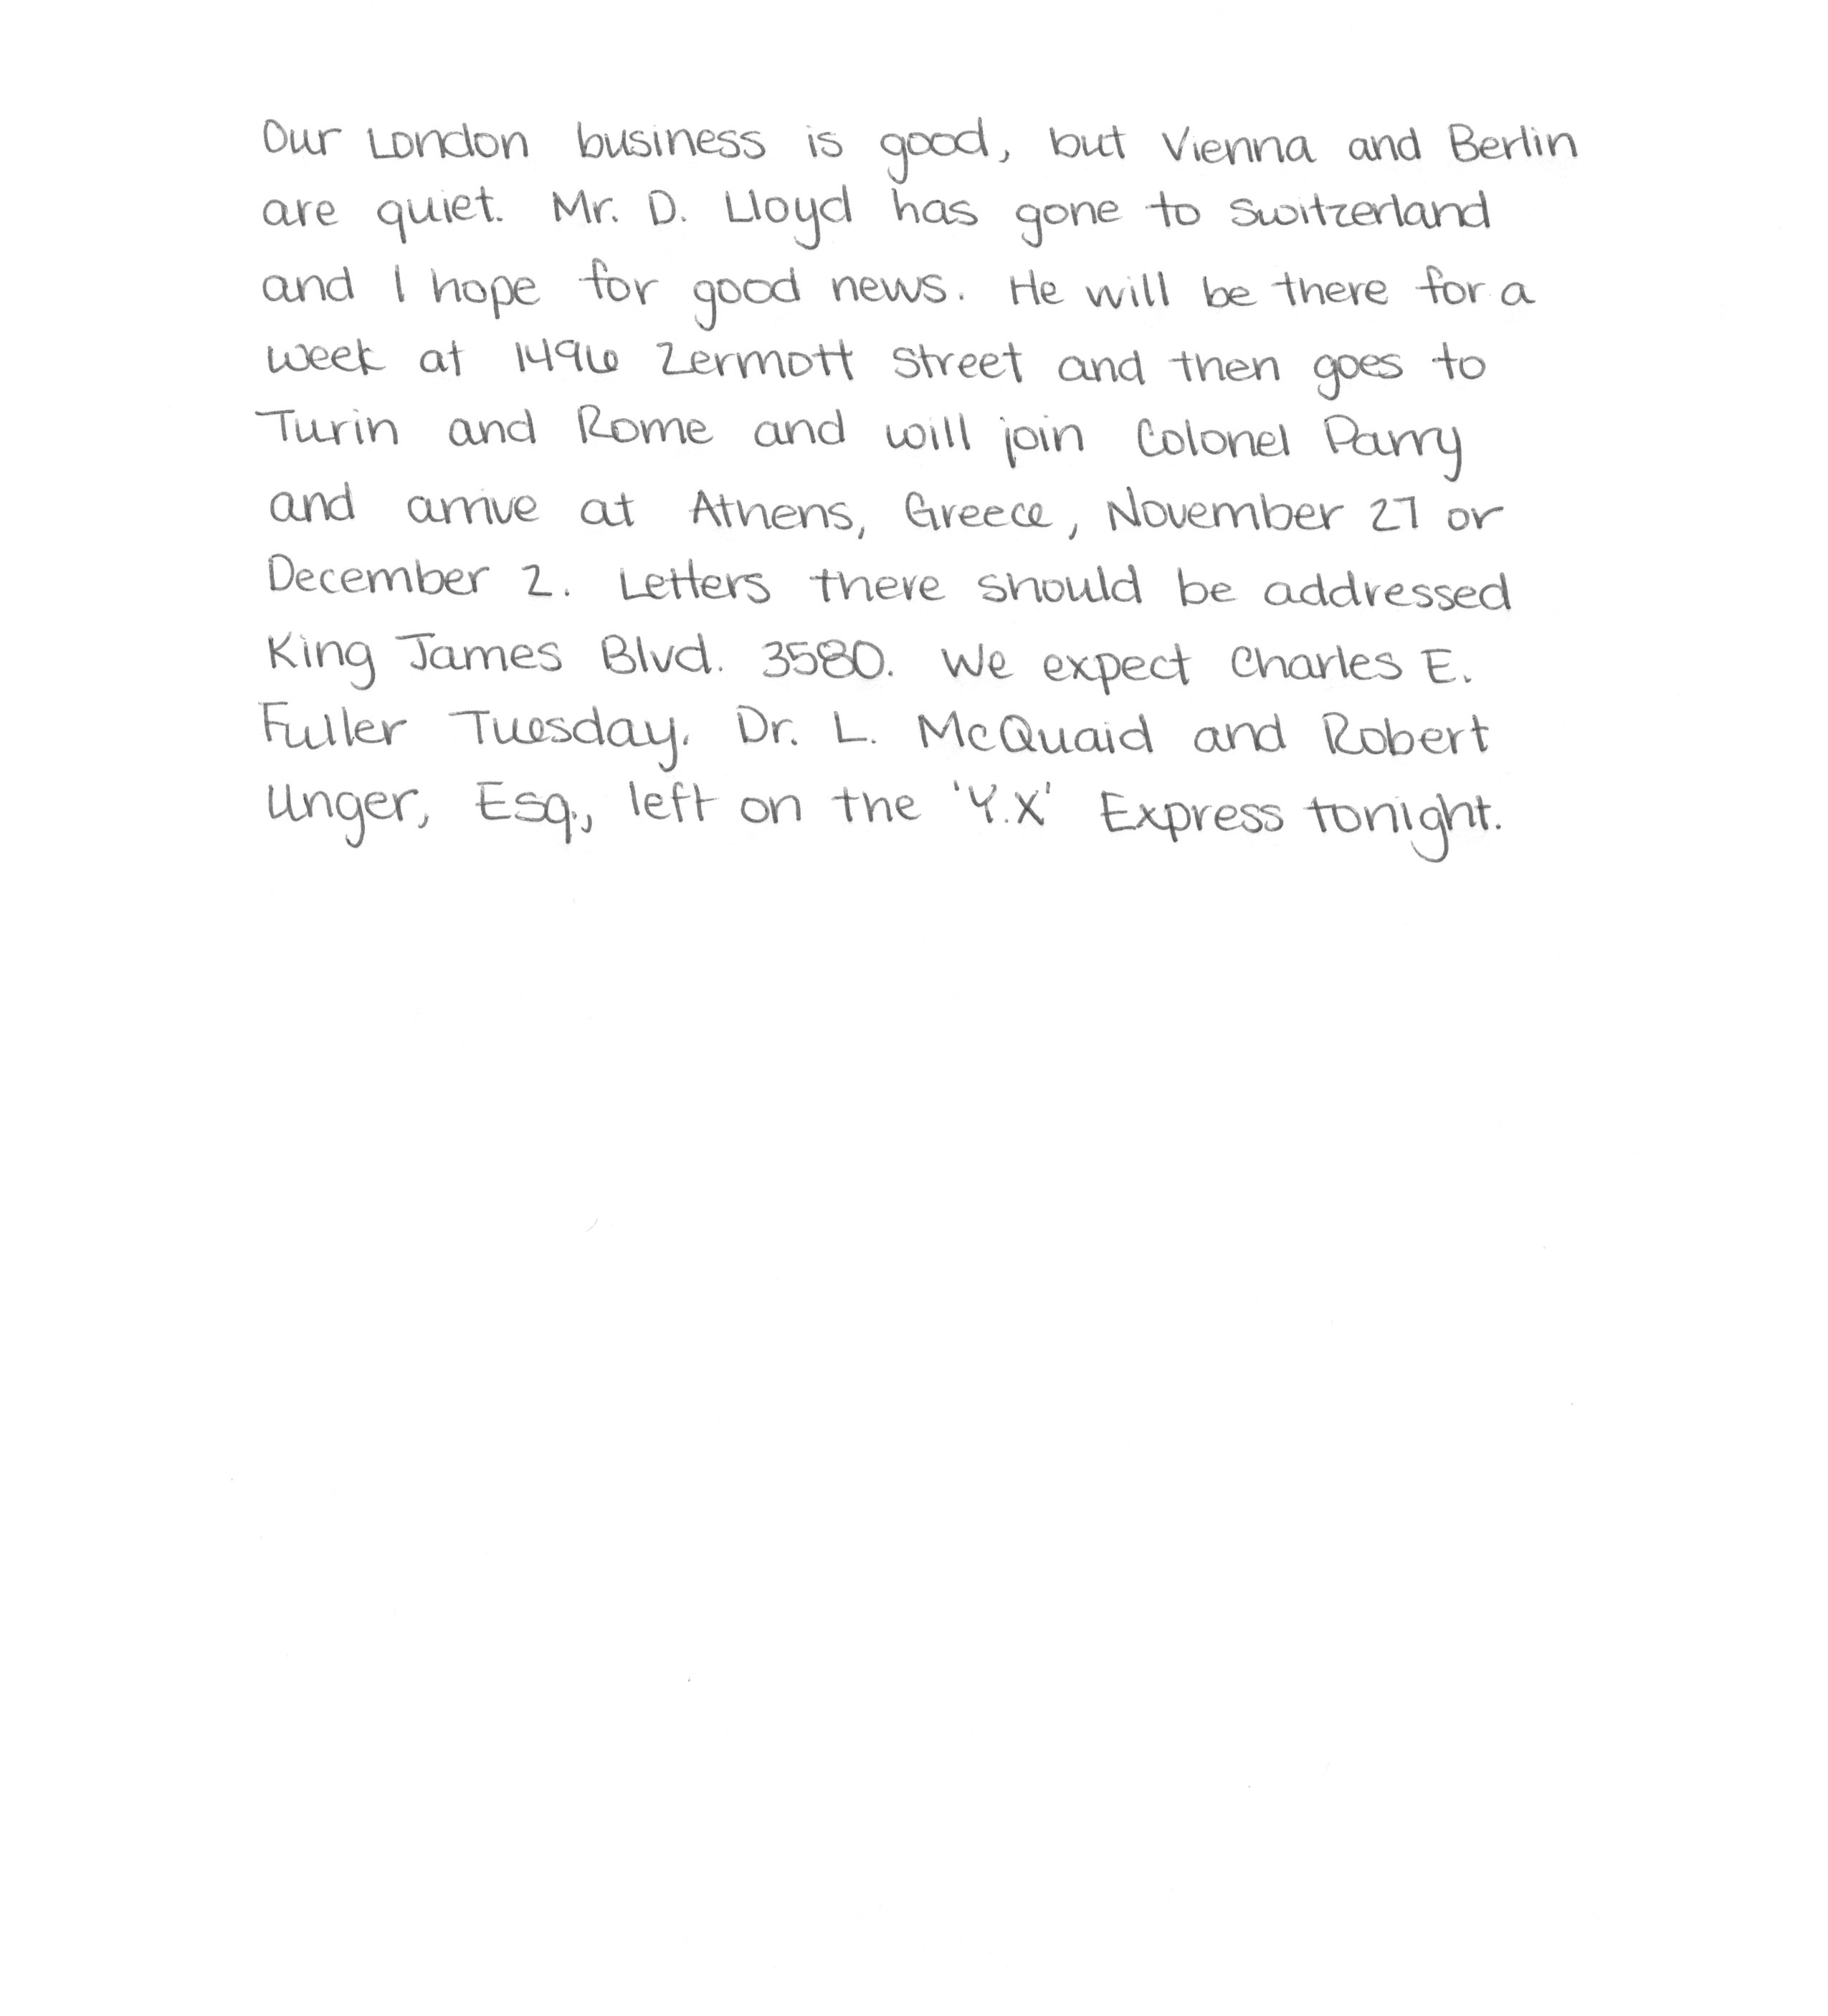 Our London business is good, but Vienna and Berlin
are quiet. Mr. D. Lloyd has gone to Switzerland
and I hope for good news. He will be there for a
week at 1496 Zermott Street and then goes to
Turin and Rome and will join Colonel Parry
and arrive at Athens, Greece, November 27 or
December 2. Letters there should be addressed
King James Blvd. 3580. We expect Charles E.
Fuller Tuesday. Dr. L. McQuaid and Robert
Unger, Esq., left on the 'Y.X' Express tonight.